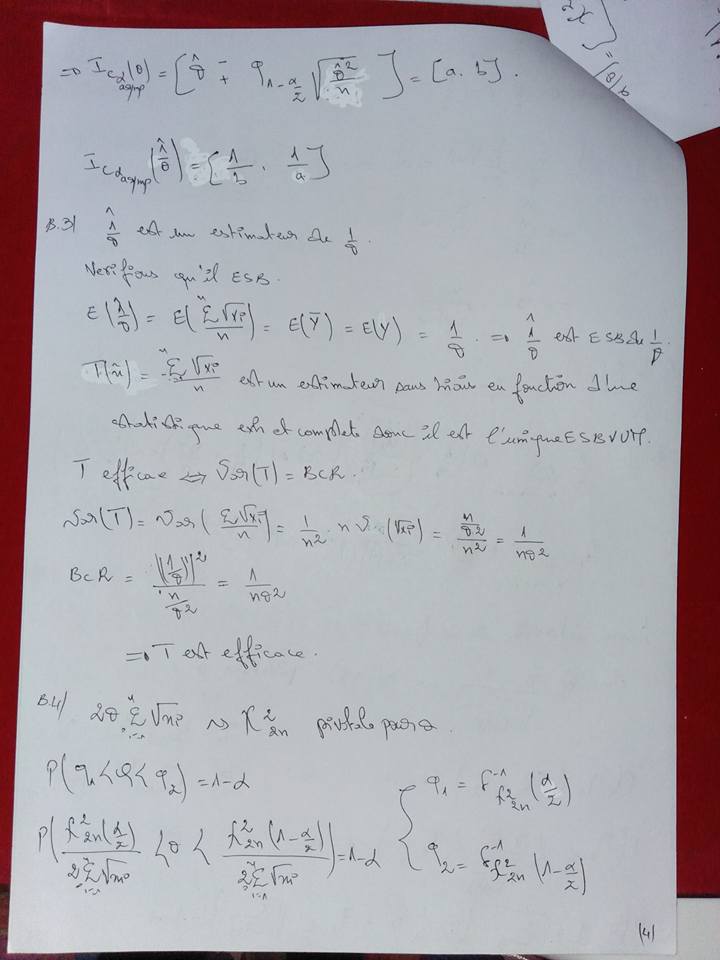 => IC_α asymp (θ) = [ θ̂ ∓ q_{1-α/2} √(θ̂²/n) ] = [a . b] .
IC_α asymp (1/θ)^ = [ 1/b . 1/a ]
B.3/ (1/θ)^ est un estimateur de 1/θ .
Verifions qu'il ESB.
E(1/θ)^ = E( Σ^n √xi / n ) = E(Ȳ) = E(Y) = 1/θ . => (1/θ)^ est ESB de 1/θ .
T(x̃) = Σ^n √xi / n est un estimateur sans biais en fonction d'une
statistique exh et complete donc il est l'unique ESBVUM.
T efficace <=> Var(T) = BCR .
Var(T) = Var( Σ√xi / n ) = 1/n² . n V (√xi) = (n/θ²)/n² = 1/(nθ²)
BCR = |(1/θ)'|² / (n/θ²) = 1/(nθ²)
=> T est efficace .
B.4/ 2θ Σ_{i=1}^n √xi ~> χ²_{2n} pivotale par θ .
P( q₁ < Q < q₂ ) = 1-α
q₁ = F⁻¹_{χ²_{2n}} (α/2)
P( χ²_{2n}(α/2) / 2Σ_{i=1}^n √xi < θ < χ²_{2n}(1-α/2) / 2Σ_{i=1}^n √xi ) = 1-α
q₂ = F⁻¹_{χ²_{2n}} (1-α/2)
(4)